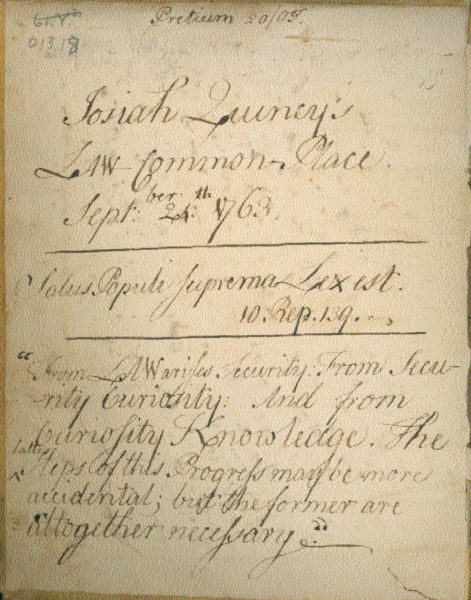 Pretium 20/05.
013.18
Josiah Quincy's
LAW Common-Place.
Septber. 24th. 1763.
Salus Populi suprema Lex est.
10. Rep. 139.
"From LAW arises Security. From Secu-
-rity Curiosity: And from
Curiosity Knowledge. The
latter
Steps of this Progress may be more
accidental; but the former are
altogether necessary."